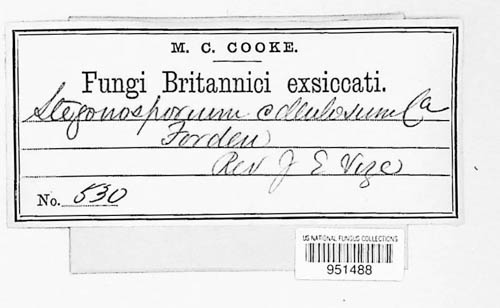 M. C. COOKE.
Fungi Britannici exsiccati.
Stegonosporium cellulosum Ca
Forden
Rev J E Vize
No. 530
US NATIONAL FUNGUS COLLECTIONS
951488